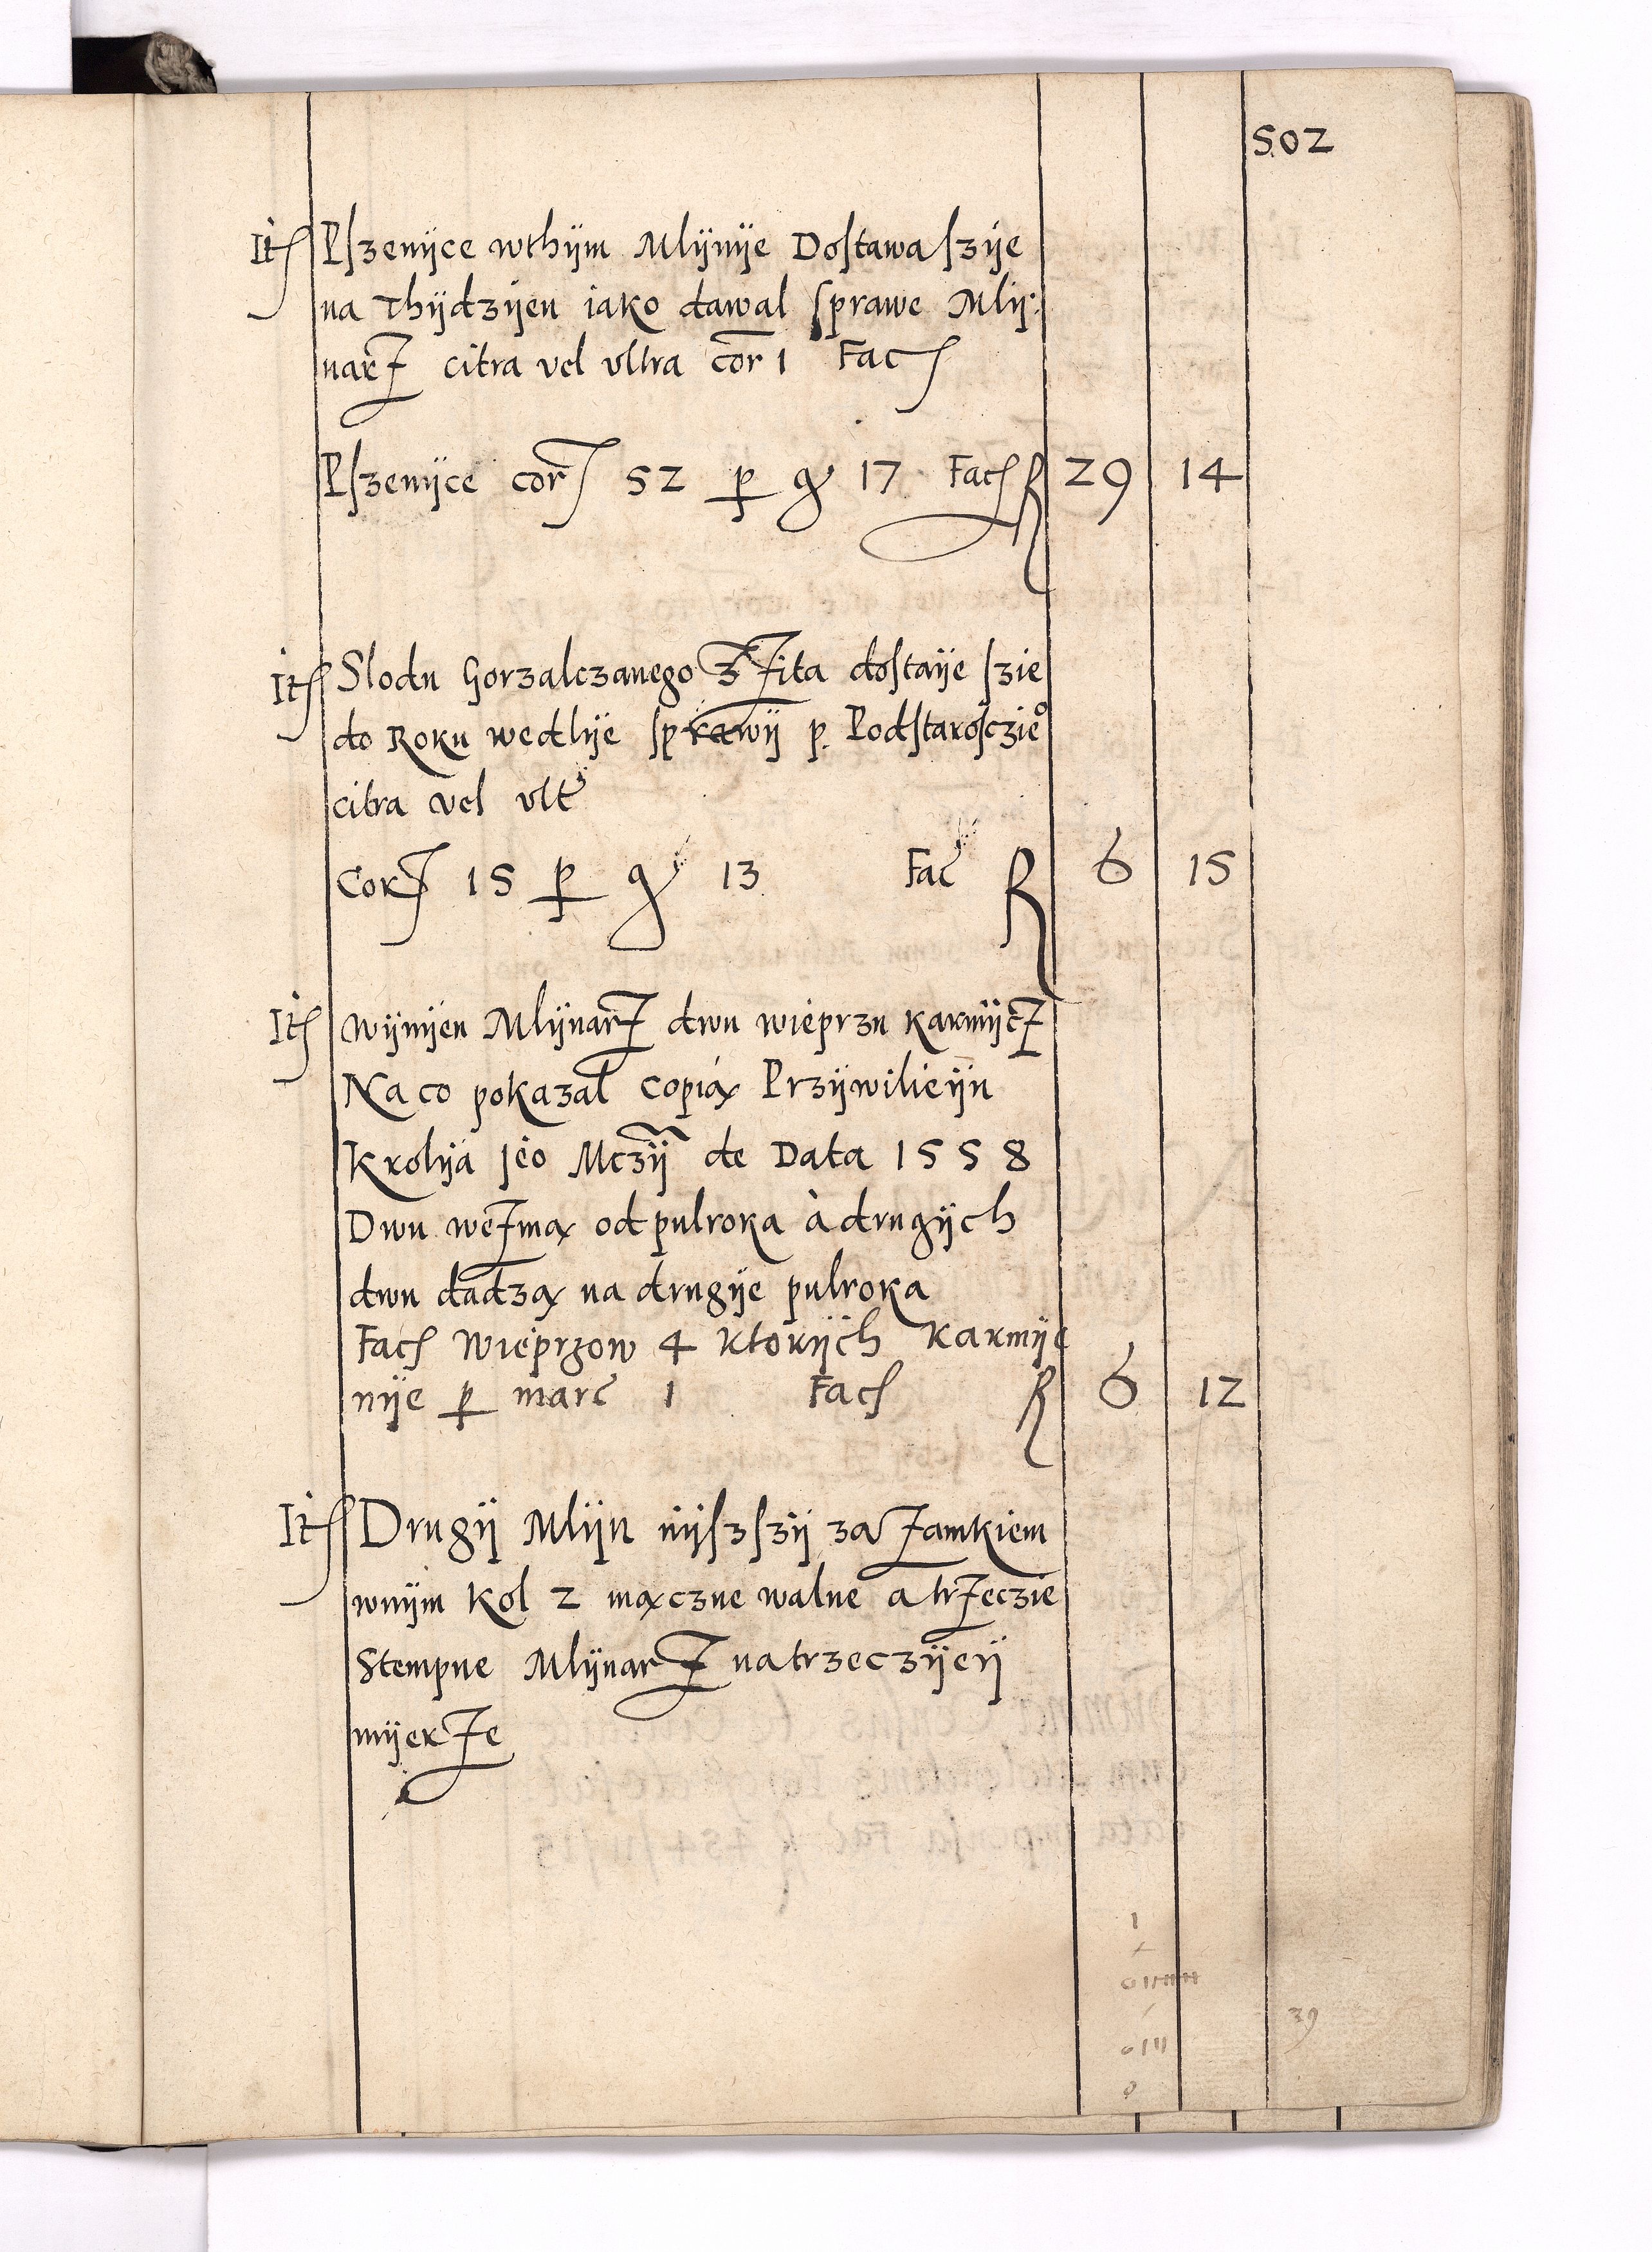 502
Itſ Pſzenÿce wthÿm Mlÿnÿe Doſtawa ſzÿe
na Thÿdzÿen iako dawal ſprawe Mlÿ:
narȜ citra vel vltra cor̄ 1 Facſ
Pſzenÿce corſ 52 ꝑ gͬ 17 Facſ R 29 14
Itſ Slodu Gorzalczanego z Ȝita doſtaÿe ſzie
do Roku wedlÿe ſprawÿ p. Podſtaroſczieͦ
citra vel vltͬ
CorȜ 15 ꝑ gͬ 13 Fac R 6 15
Itſ wÿmÿen MlÿnarȜ dwu wieprzu karmÿcȜ
Na co pokazal copiaꝝ Przÿwilieÿu
Krolÿa ieo Mczÿ de Data 1558
Dwu weȜmą od pulroka à drugÿch
dwu dadzą na drugÿe pulroka
Facſ Wieprzow 4 ktorÿch karmÿe
nÿe ꝑ marc 1 Facſ R 6 12
Itſ Drugÿ Mlÿn nÿſzſzÿ za Ȝamkiem
wnÿm Kol 2 mączne walne a trȜeczie
Stempne MlÿnarȜ na trzeczÿeÿ
mÿerȜe
39